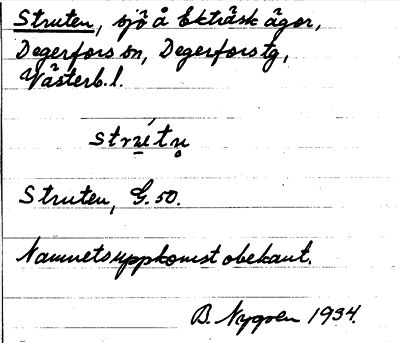 Struten, sjö å Ekträsk ägor,
Degerfors sn, Degerfors tg,
Västerb. l.
strútn̥
Struten, G. 50.
Namnets uppkomst obekant.
B. Nygren 1934.